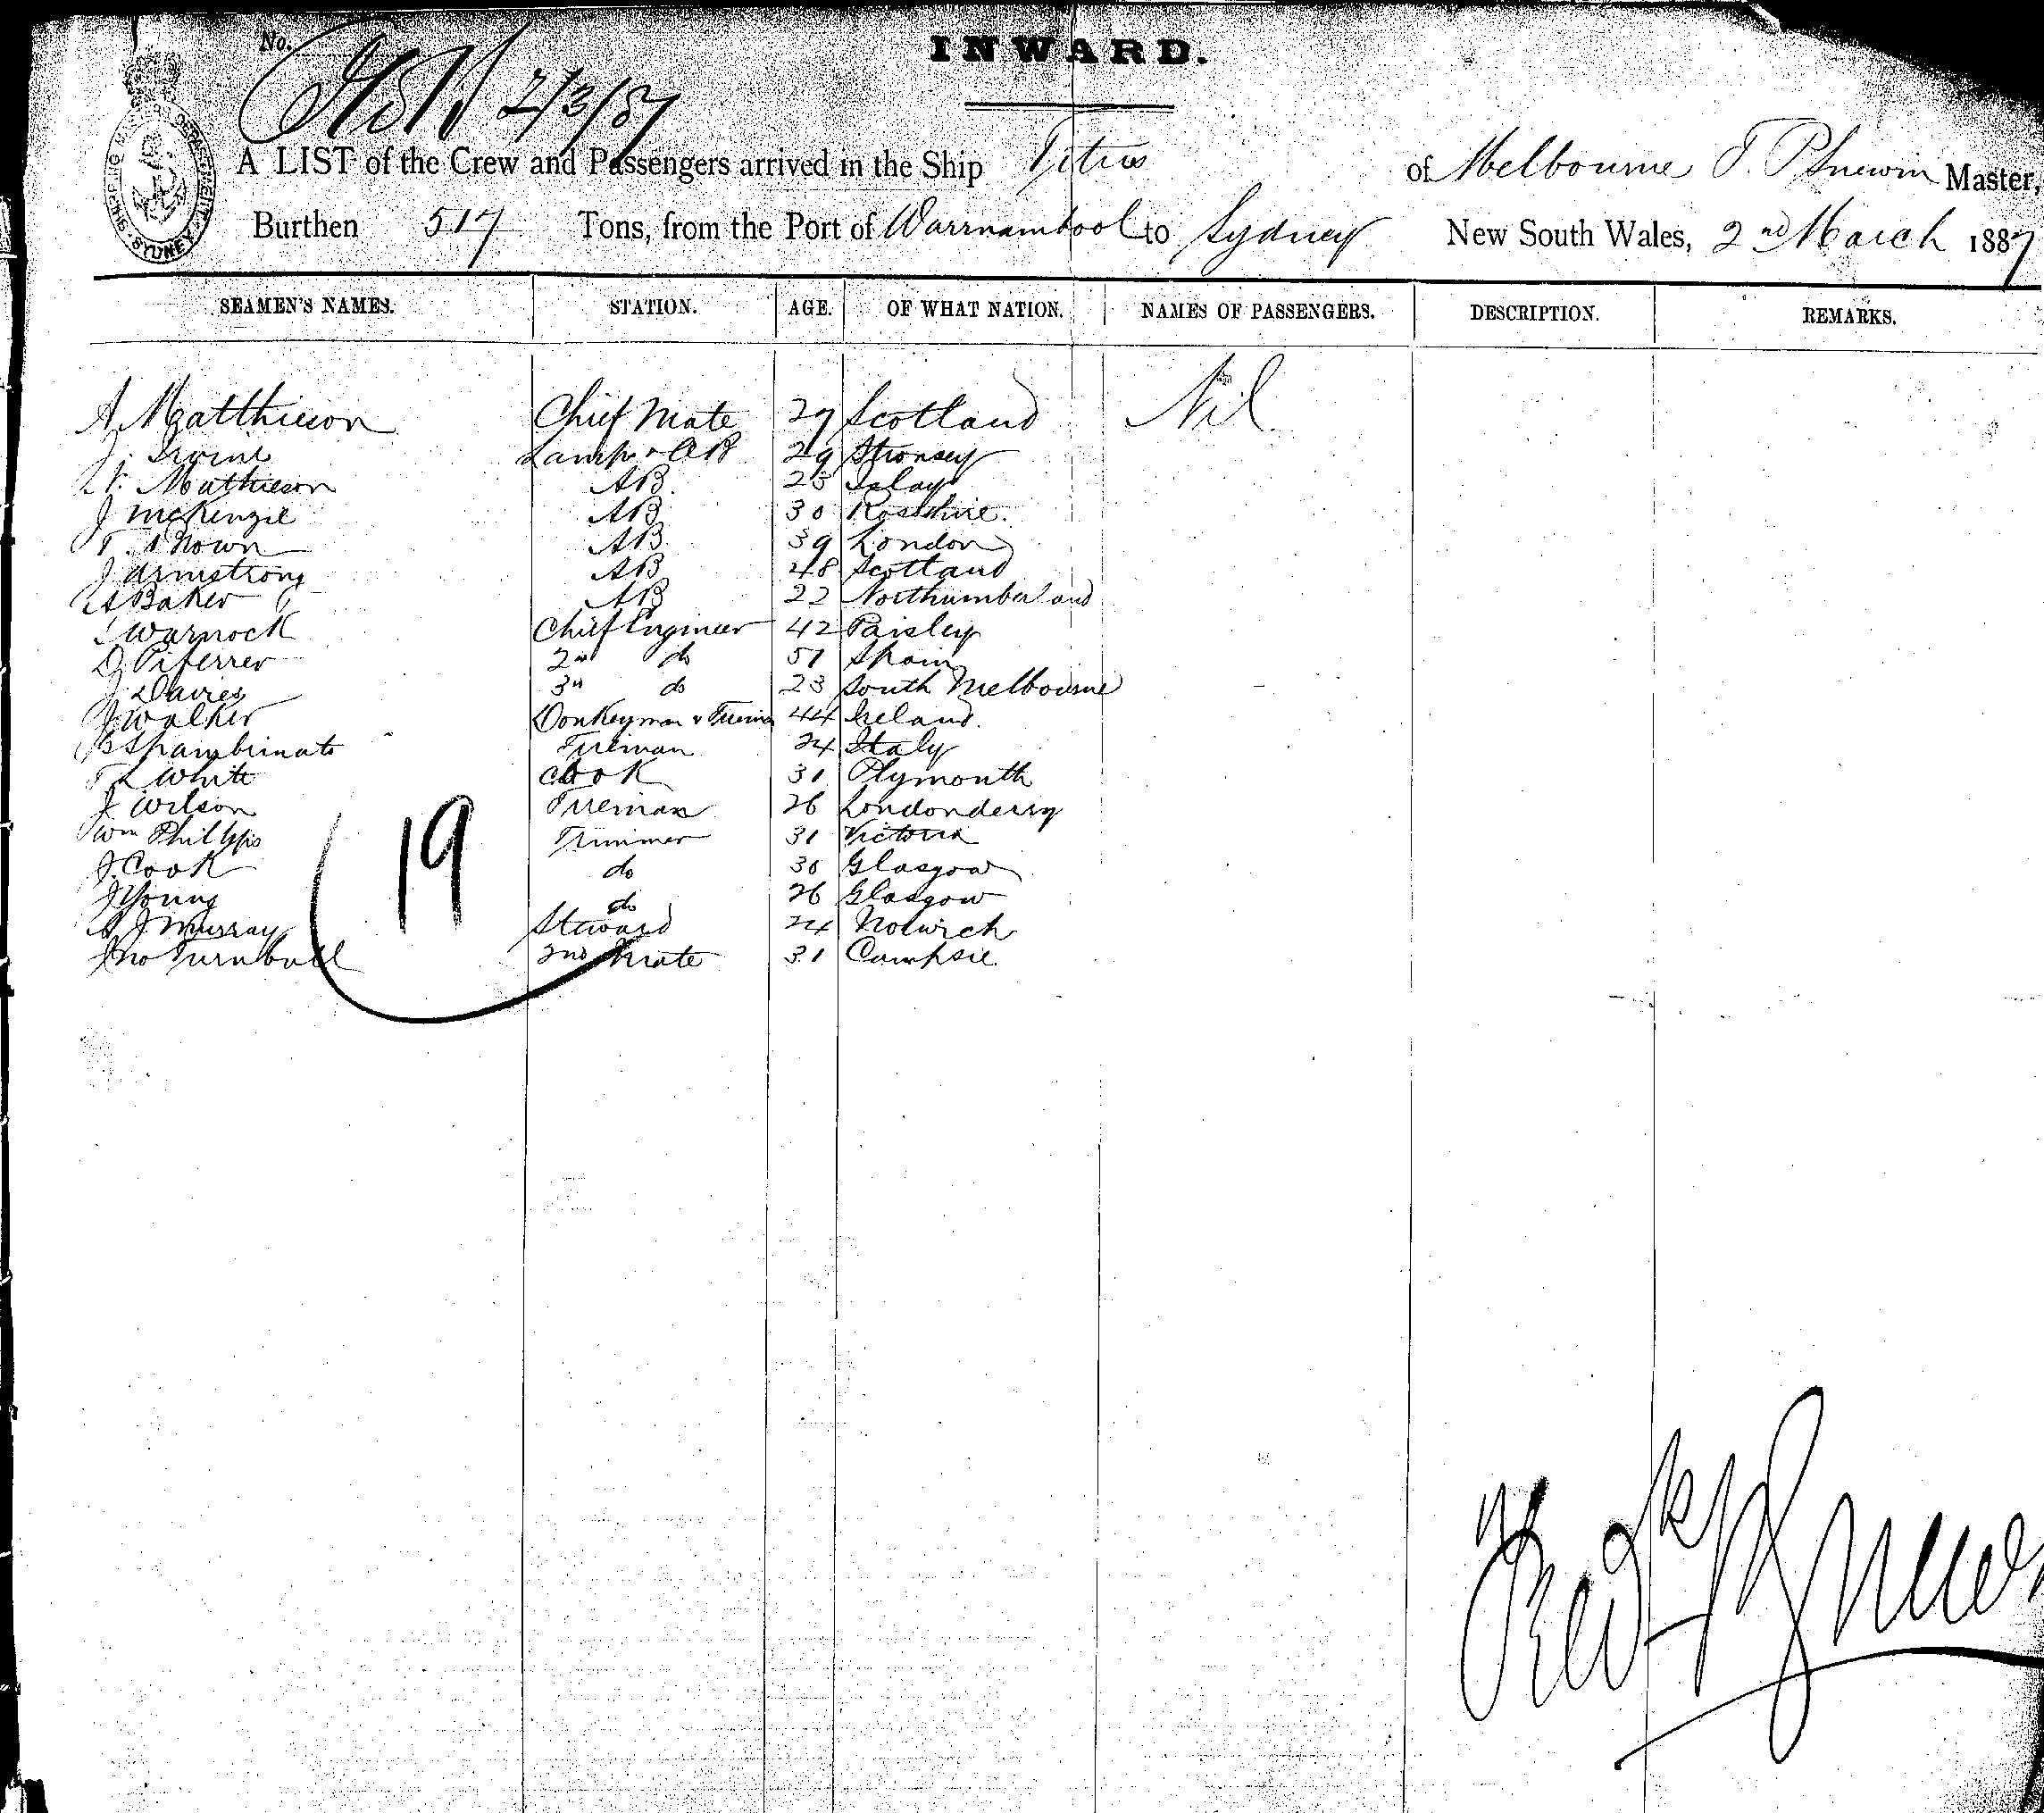 No.
INWARD.
2/3/87
A LIST of the Crew and Passengers arrived in the Ship Titus of Melbourne Master,
Burthen 517 Tons, from the Port of Warrnambool to Sydney New South Wales, 2nd March 1887
SHIPPING MASTER'S DEPARTMENT SYDNEY
SEAMEN'S NAMES. STATION. AGE. OF WHAT NATION. NAMES OF PASSENGERS. DESCRIPTION. REMARKS.
A Matthieson Chief Mate 27 Scotland Nil
J. Irvine Lamps & AB 29 Stronsey
Mathieson AB 25 Islay
J McKenzie AB 30 Rosshire.
AB 39 London
J Armstrong AB 48 Scotland
A Baker AB 22 Northumberland
Warnock Chief Engineer 42 Paisley
D Piferrer 2nd do 51 Spain
J Davies 3rd do 23 South Melbourne
J Walker Donkeyman & Fireman 44 Ireland.
Fireman 24 Italy
T L White Cook 31 Plymouth
J Wilson Fireman 26 Londonderry
Wm Phillips Trimmer 31 Victoria
J. Cook do 30 Glasgow
J Young do 26 Glasgow
J Murray Steward 24 Norwich
Jno Turnbull 2nd Mate 31 Campsie.
19